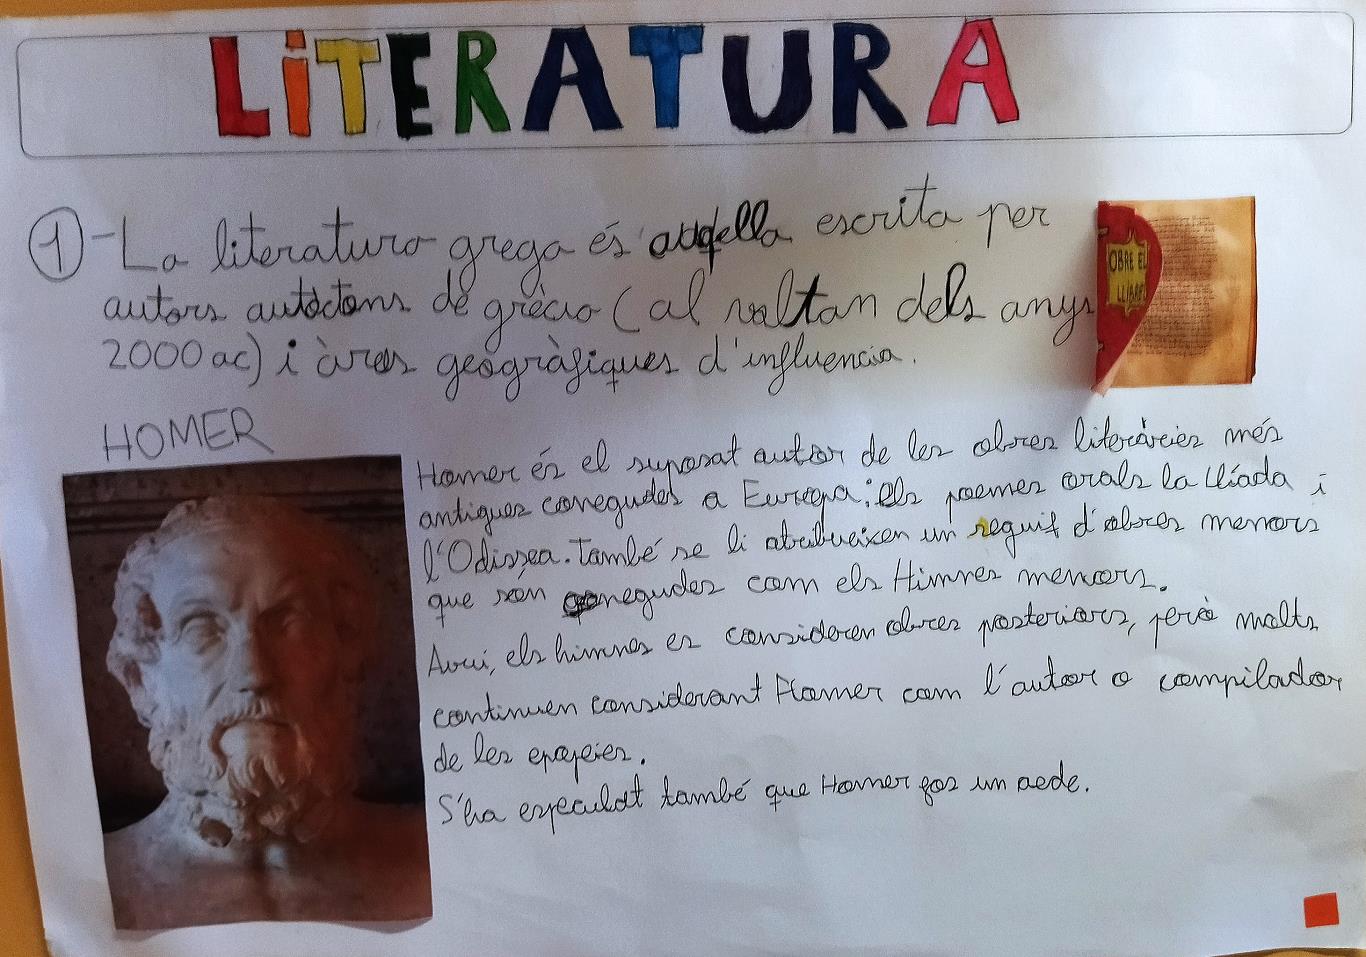 LiTERATURA
1 - La literatura grega és auqella escrita per
autors autòctons de grècia (al voltan dels anys
2000 ac) i àrees geogràfiques d'influencia.
OBRE EL
LLIBRE
HOMER
Homer és el suposat autor de les obres literàries més
antigues conegudes a Europa: els poemes orals la Llíada i
l'Odissea. També se li atribueixen un reguit d'obres menors
que són conegudes com els Himnes menors.
Avui, els himnes es consideren obres posteriors, però molts
continuen considerant Homer com l'autor o compilador
de les epopeies.
S'ha especulat també que Homer fos un aede.